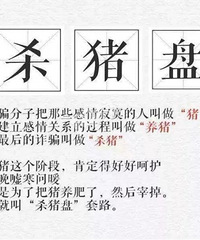 杀猪盘
骗分子把那些感情寂寞的人叫做“猪
建立感情关系的过程叫做“养猪”
最后的诈骗叫做“杀猪”
猪这个阶段，肯定得好好呵护
晚嘘寒问暖
是为了把猪养肥了，然后宰掉。
就叫“杀猪盘”套路。